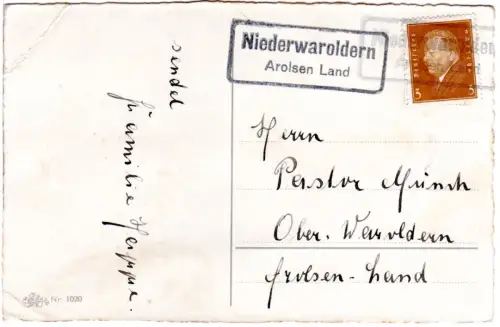 Niederwaroldern
Arolsen Land
Deutsches Reich
3 3
sendet
Familie
Herrn
Pastor Münch
Ober. Waroldern
Arolsen-Land
Nr. 1020